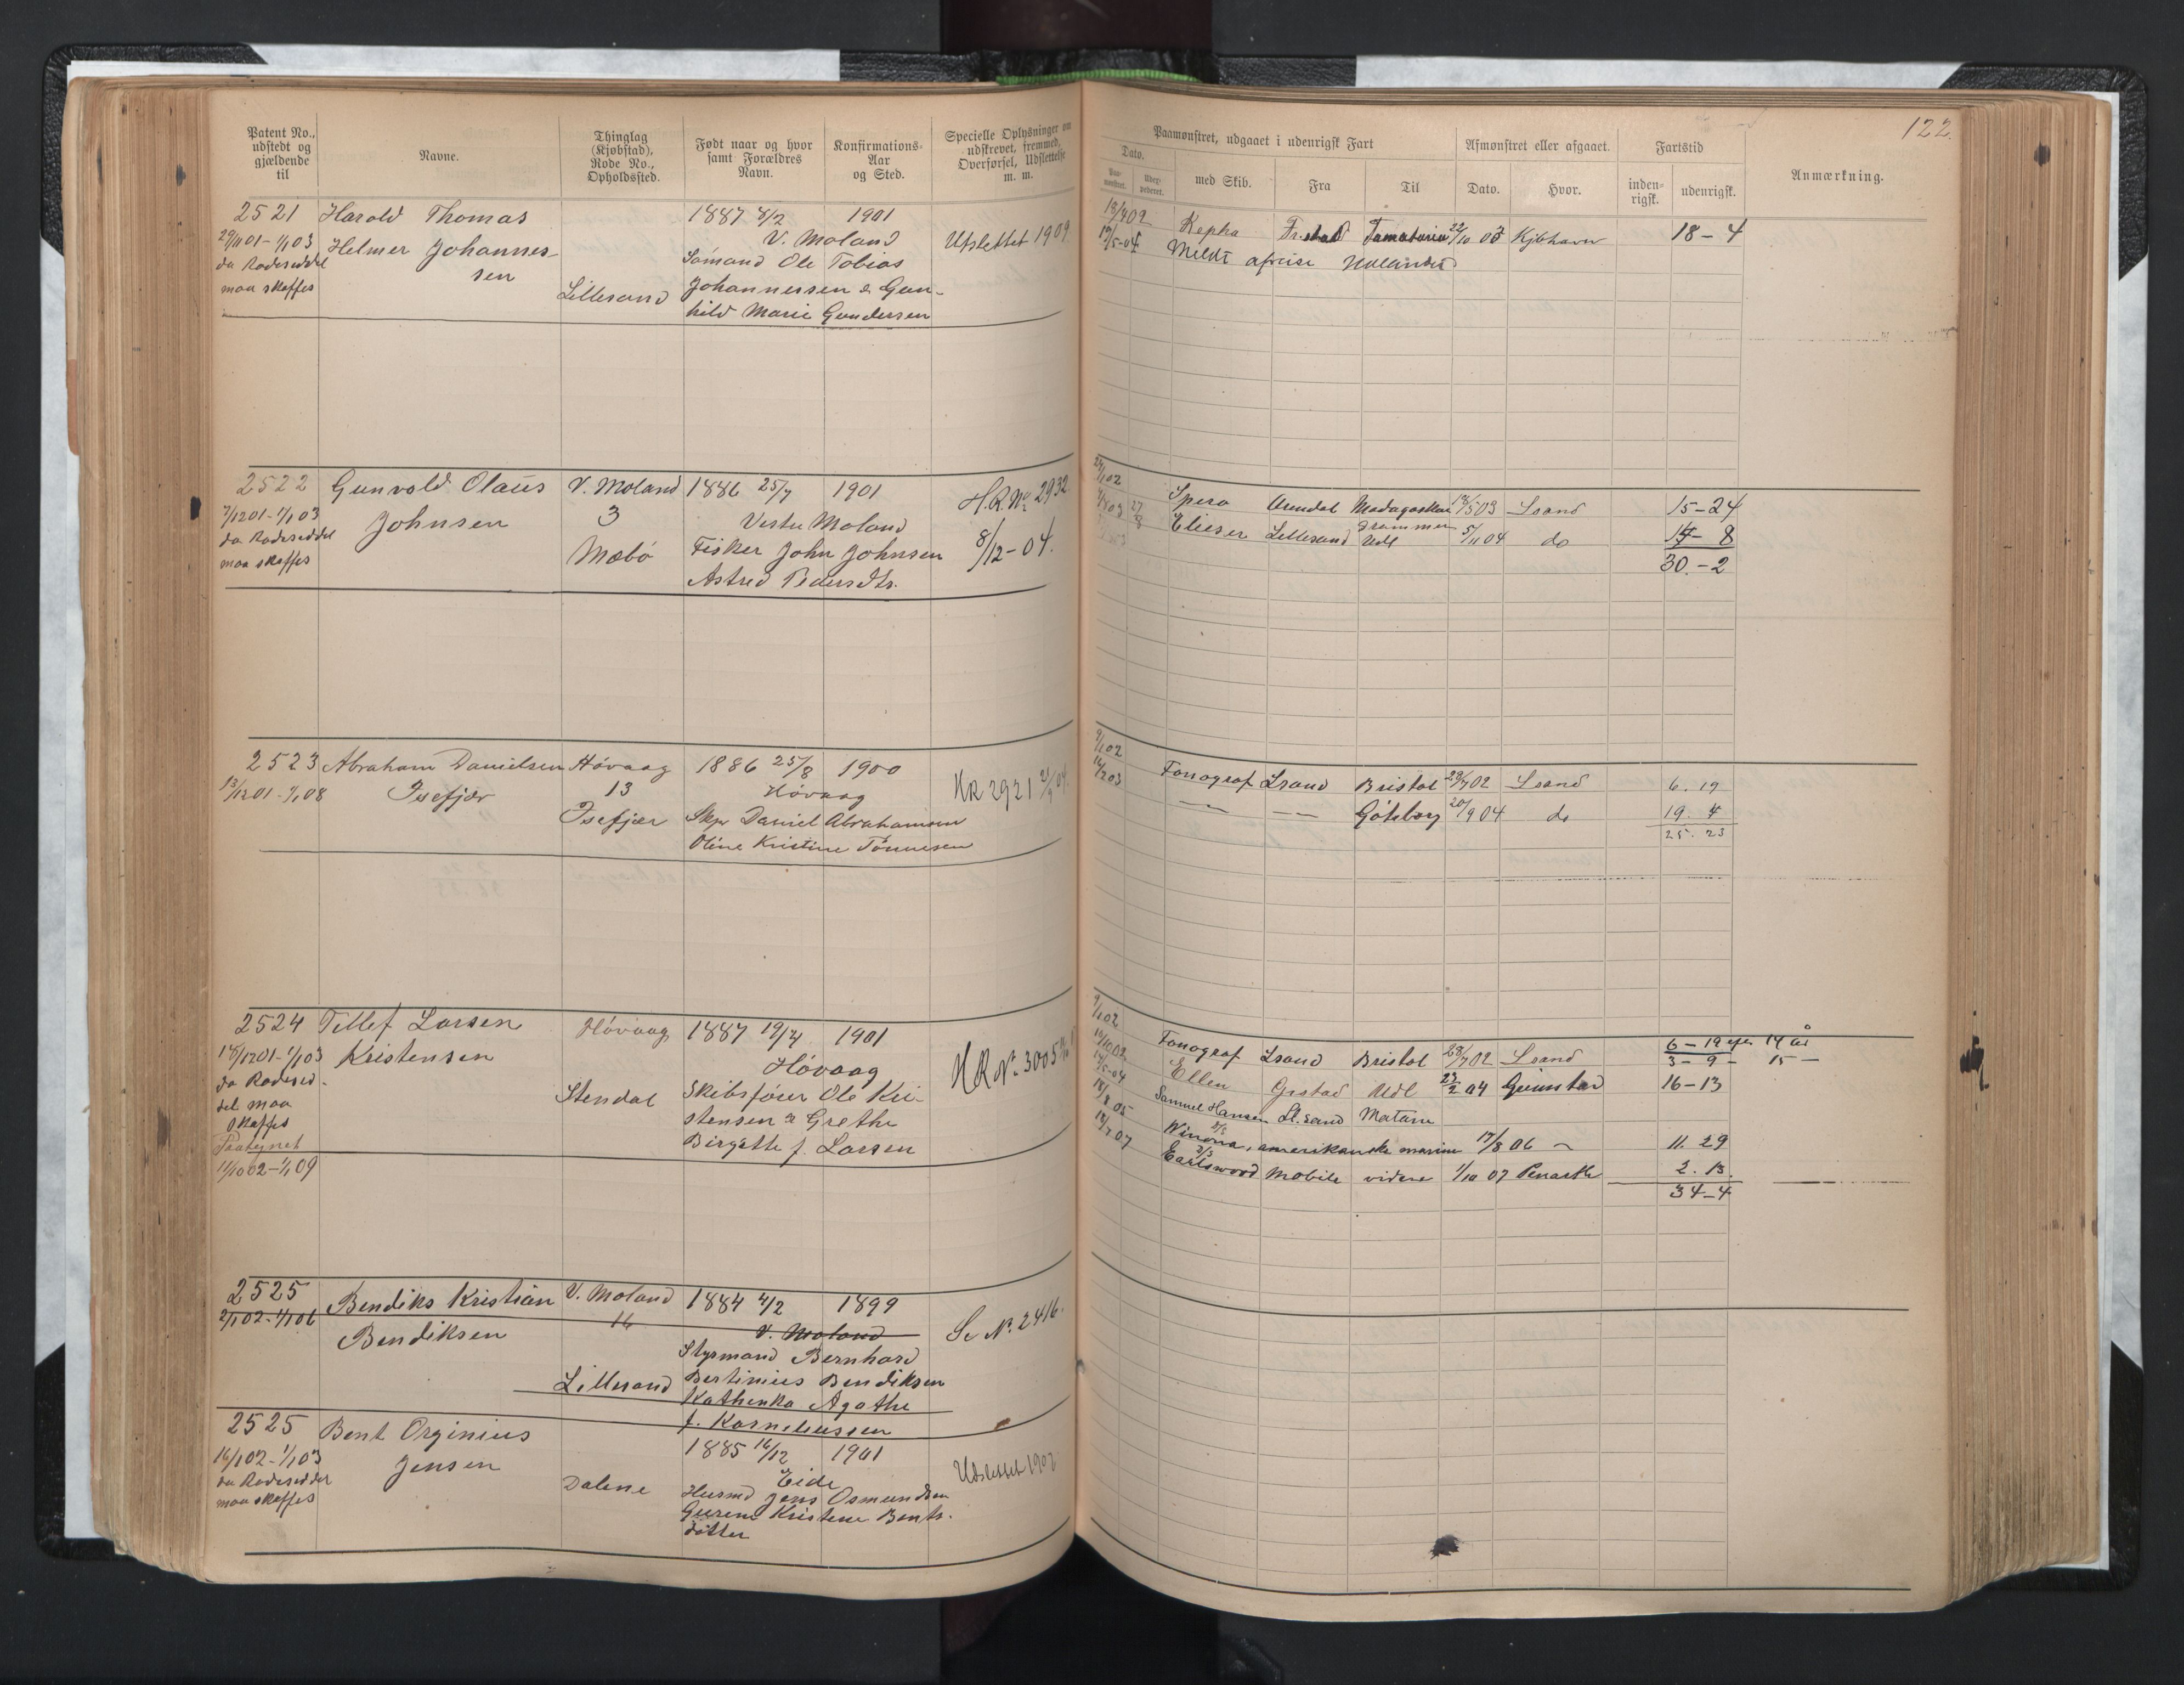 122.
Patent No., udstedt og gjældende til
Navne.
Thinglag (Kjøbstad), Rode No., Opholdssted.
Født naar og hvor samt Forældres Navn.
Konfirmations-Aar og Sted.
Specielle Oplysninger om udskrevet, fremmed, Overførsel, Udslettelse m. m.
Paamønstret, udgaaet i udenrigsk Fart
Dato.
med Skib.
Fra
Til
Afmønstret eller afgaaet.
Dato.
Hvor.
Fartstid
inden-rigsk.
udenrigsk.
Anmærkning.
2521 Harold Thomas 1887 8/2 1901
29/11 01 - 1/1 03 Helmer Johannes- V. Moland Utslettet 1909.
da Rodeseddel sen Sømand Ole Tobias
maa skaffes Lillesand Johannessen & Gun-
hild Marie Gundersen
Kepha Fr.stad 22/10 03 Kjbhavn 18-4
Meldt afreise
2522 Gunvold Olaus V. Moland 1886 25/7 1901 H.R. No 2932
7/12 01 - 1/1 03 Johnsen 3 Vestre Moland
da Rodeseddel Fisker John Johnsen 8/12-04.
maa skaffes Mæbø Astred Pedersdtr.
Spero Arendal Madagaskar 18/5 03 Lsand 15-24
Elieser Lillesand Drammen Udl 5/11 04 do 14-8
30.-2
2523 Abraham Danielsen Høvaag 1886 25/8 1900
13/12 01 - 1/1 08 Isefjær 13 Høvaag HR 2921
Isefjær Skpr Daniel Abrahamsen
Oline Kristine Tønnesen
9/1 02 Fonograf Lsand Bristol 28/7 02 Lsand 6. 19
— — Göteborg 20/9 04 do 19. 4
25. 23
2524 Tellef Larsen Høvaag 1887 19/4 1901
18/12 01 - 1/1 03 Kristensen Høvaag HR No 3005
da Rodesed-
del maa Stendal Skibsfører Ole Kri-
skaffes stensen & Grethe
Paategnet Birgitte f. Larsen
11/10 02 - 1/1 09
9/1 02 Fonograf Lsand Bristol 28/7 02 Lsand 6-19 efr 14 år
3-9- 15-
Ellen Grstad Udl 23/2 04 Grimstad 16-13
Samuel Hansen Ll.sand Matam
18/8 05 Winona, amerikanske marine 17/8 06 - 11. 29
18/7 07 Earlswood Mobile videre 1/10 07 Penarth 2. 13.
34-4
2525 Bendiks Kristian V. Moland 1884 4/2 1899
2/1 02 - 1/1 06 Bendiksen 16 V. Moland Se No. 2416.
Styrmand Bernhard
Lillesand Bertinius Bendiksen
Kathenka Agathe
f. Korneliussen
2525 Bent Orginius 1885 16/12 1901
16/1 02 - 1/1 03 Jensen Eide Udslettet 1907
da Rodeseddel Dalene Husmd Jens Osmundsen
maa skaffes Gurene Kristene Bents-
dotter